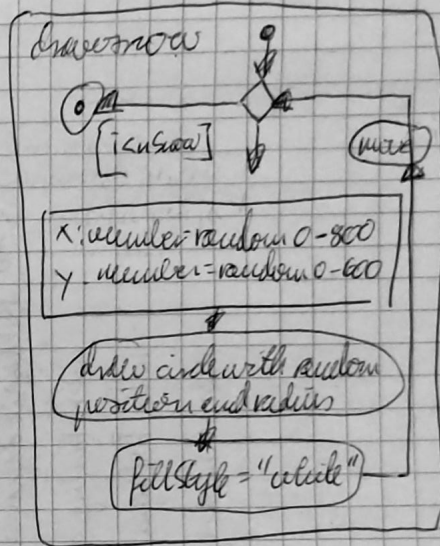 drawSnow
[i<nSnow]
move
x: number = random 0-800
y: number = random 0-600
draw circle with random
position and radius
fillStyle = "white"